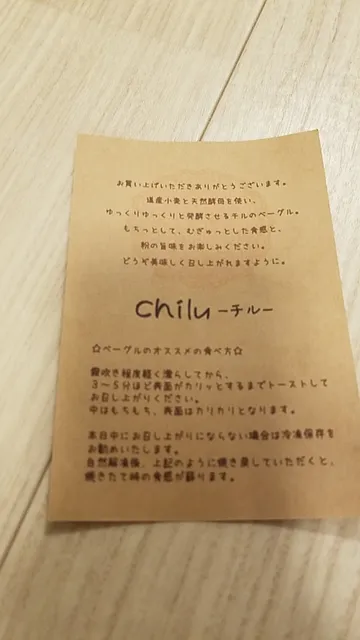 お買い上げいただきありがとうございます。
道産小麦と天然酵母を使い、
ゆっくりゆっくりと発酵させるチルのベーグル。
もちっとして、むぎゅっとした食感と、
粉の旨味をお楽しみください。
どうぞ美味しく召し上がれますように。
chilu ーチルー
☆ベーグルのオススメの食べ方☆
霧吹き程度軽く濡らしてから、
3〜5分ほど表面がカリッとするまでトーストして
お召し上がりください。
中はもちもち、表面はカリカリとなります。
本日中にお召し上がりにならない場合は冷凍保存を
お勧めいたします。
自然解凍後、上記のように焼き戻していただくと、
焼きたて時の食感が蘇ります。